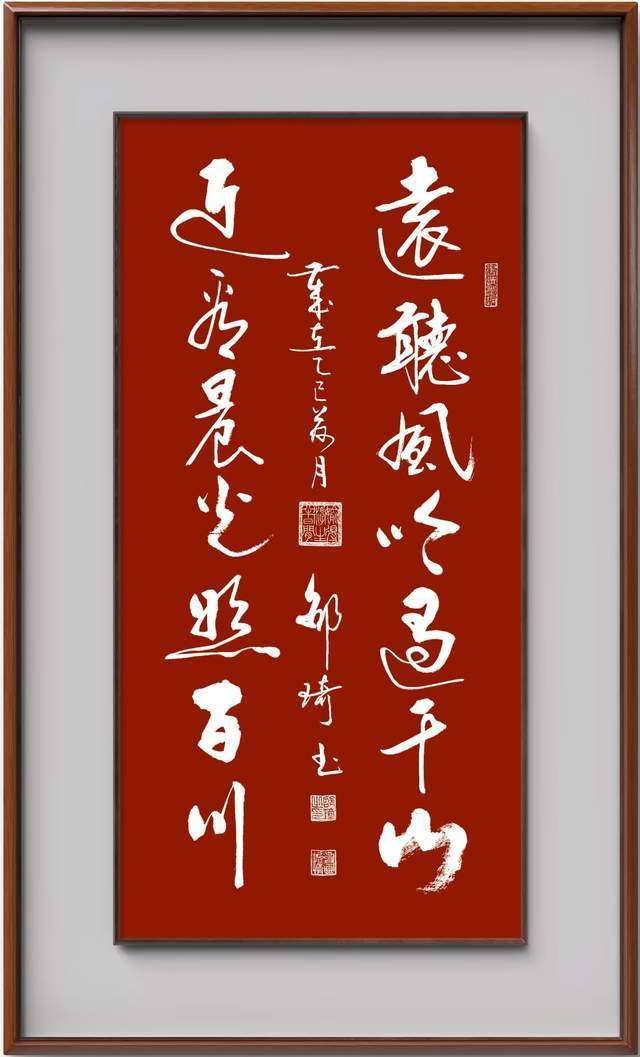 遠聽風吟過千山
近看晨光照百川
歲在乙巳荷月
邹琦玉